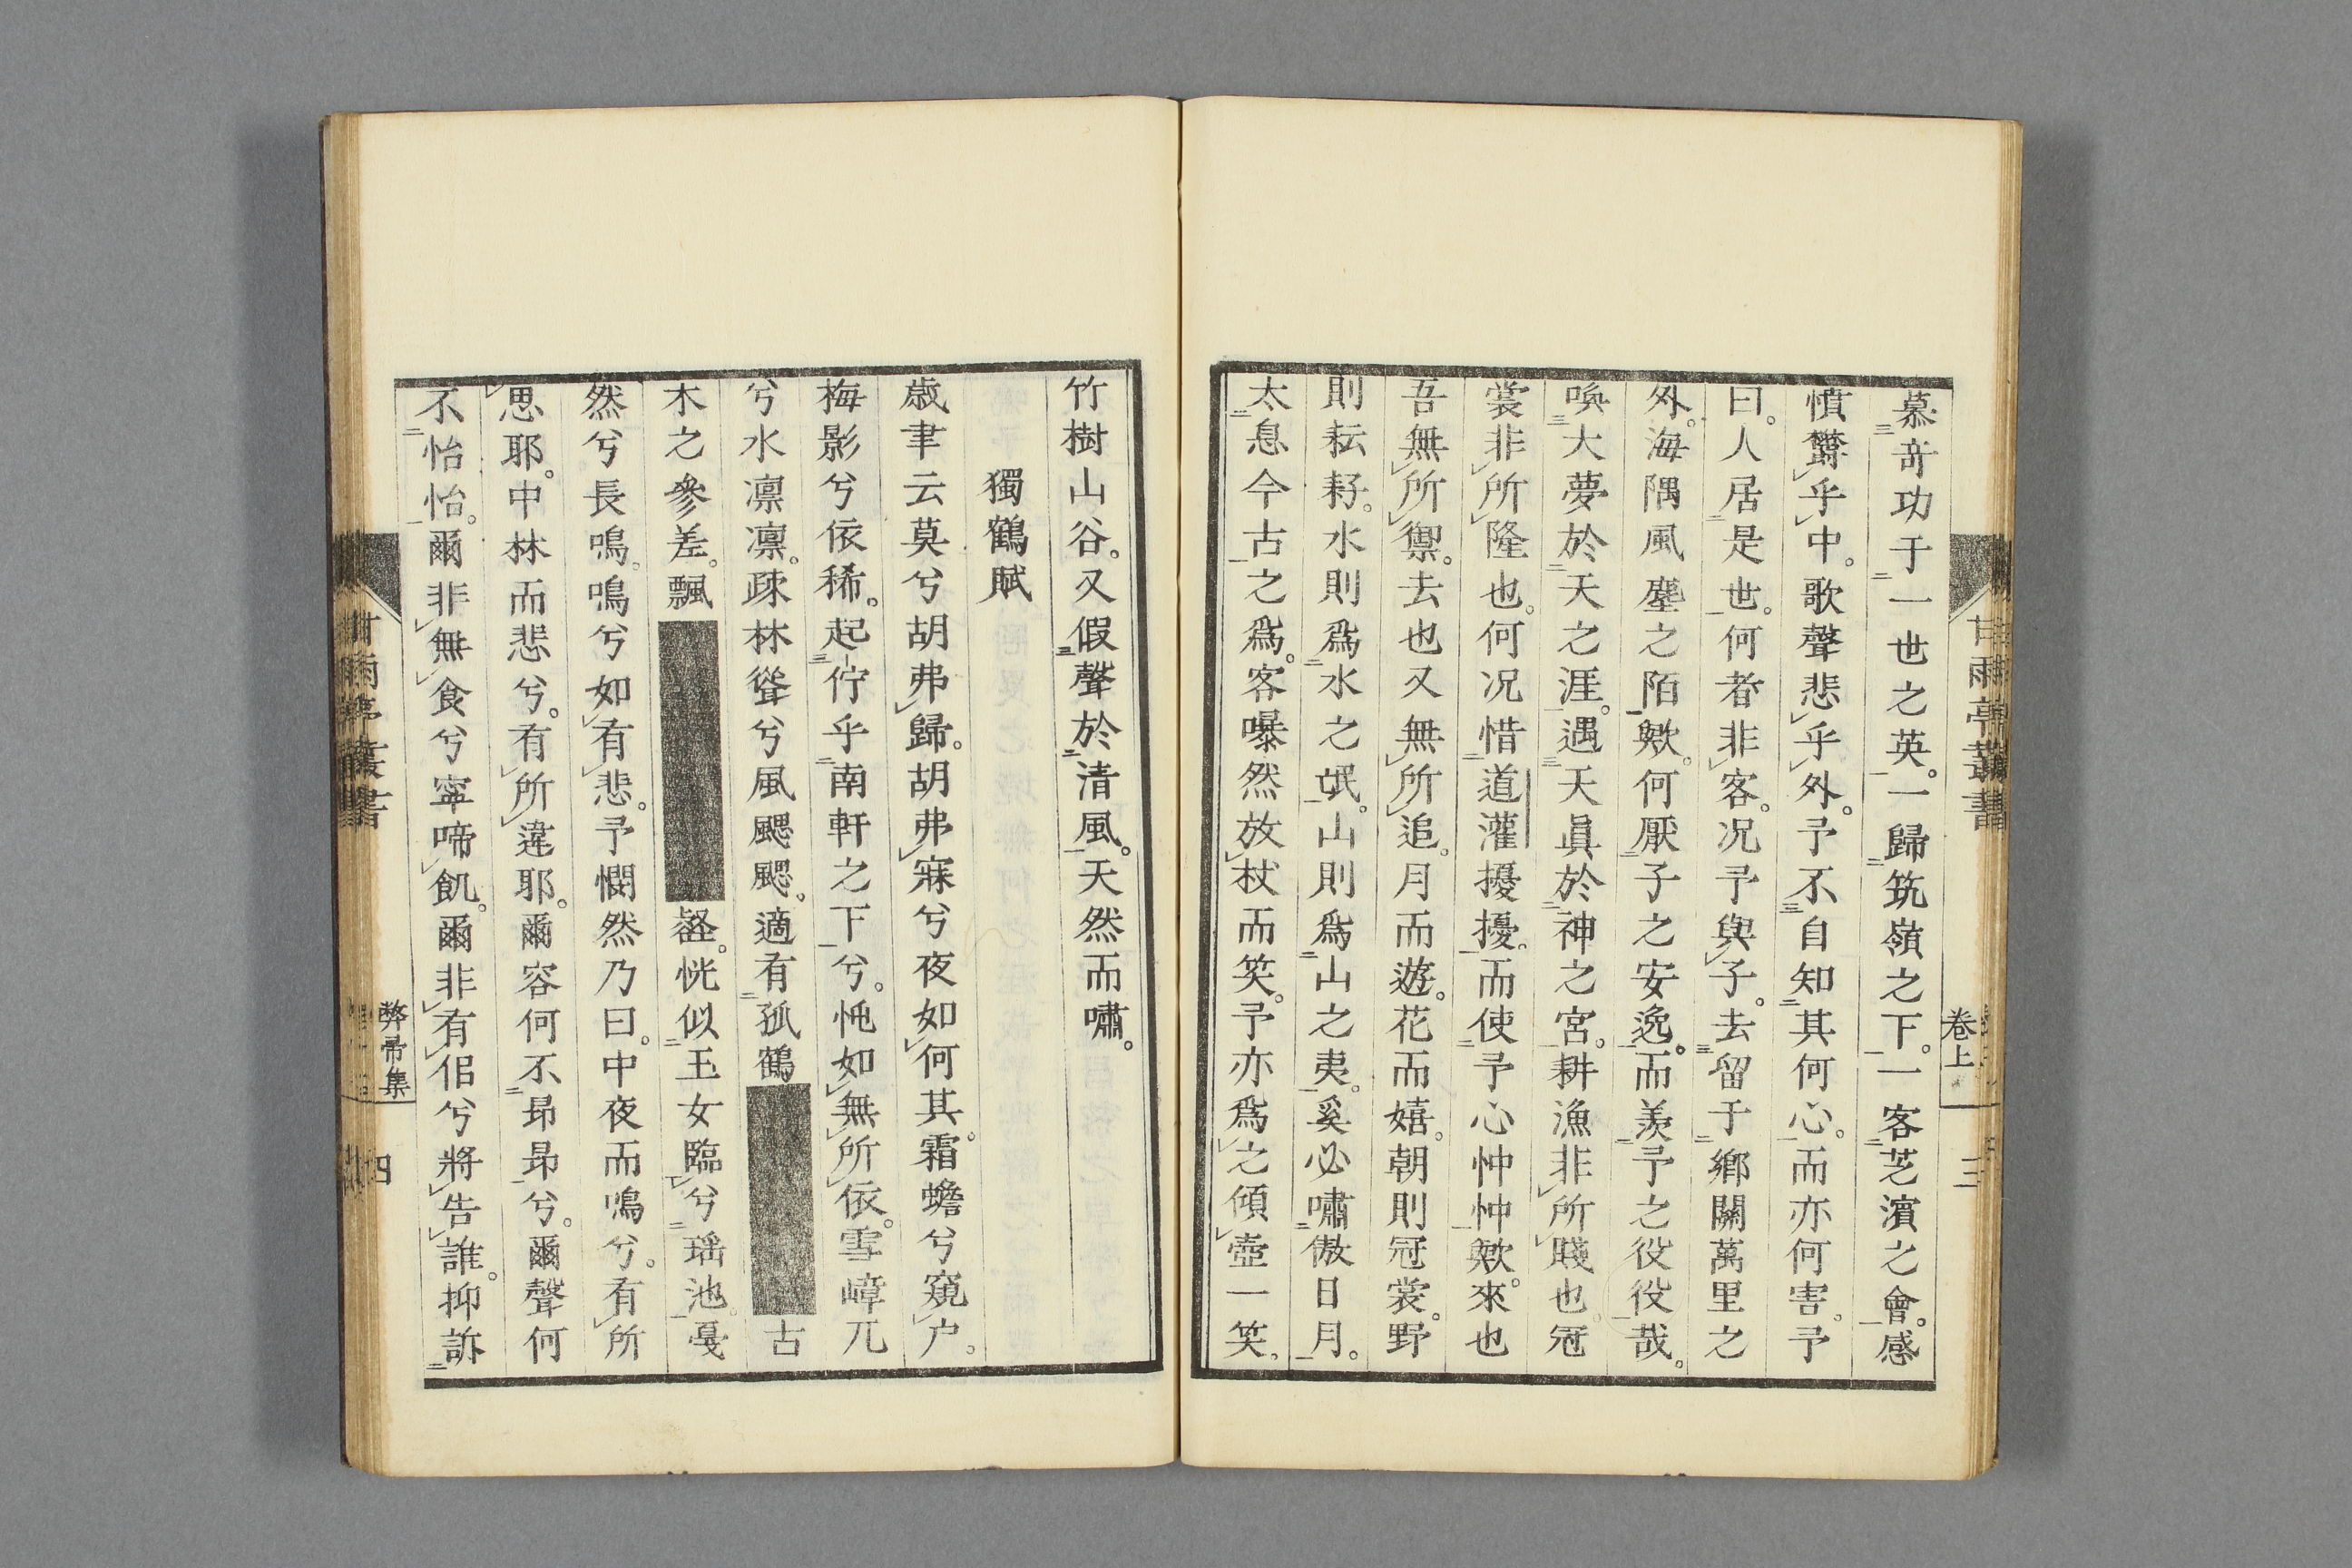 慕奇功于一世之英。一歸筑嶺之下。一客芝濱之會。感
憤欝乎中。歌聲悲乎外。予不自知其何心。而亦何害。予
曰。人居是世。何者非客。况予與子。去留于鄉關萬里之
外。海隅風塵之陌歟。何厭子之安逸。而羨予之役役哉。
喚大夢於天之涯。遇天眞於神之宮。耕漁非所賤也。冠
裳非所隆也。何况惜道灌擾擾。而使予心忡忡歟。來也
吾無所禦。去也又無所追。月而遊。花而嬉。朝則冠裳。野
則耘耔。水則爲水之氓。山則爲山之夷。奚必嘯傲日月。
太息今古之爲。客嚗然放杖而笑。予亦爲之傾壺一笑。
甘雨亭叢書
卷上
三
竹樹山谷。又假聲於清風。天然而嘯。
獨鶴賦
歲聿云莫兮胡弗歸。胡弗寐兮夜如何其。霜蟾兮窺户。
梅影兮依稀。起佇乎南軒之下兮。忳如無所依。雪嶂兀
兮水凛凛。疎林聳兮風颸颸。適有孤鶴 古
木之參差。飄 恍似玉女臨兮瑶池。戞
然兮長鳴。鳴兮如有悲。予憫然乃曰。中夜而鳴兮。有所
思耶。中林而悲兮。有所違耶。爾容何不昻昻兮。爾聲何
不怡怡。爾非無食兮寧啼飢。爾非有侶兮將告誰。抑訴
甘雨亭叢書
弊帚集
四